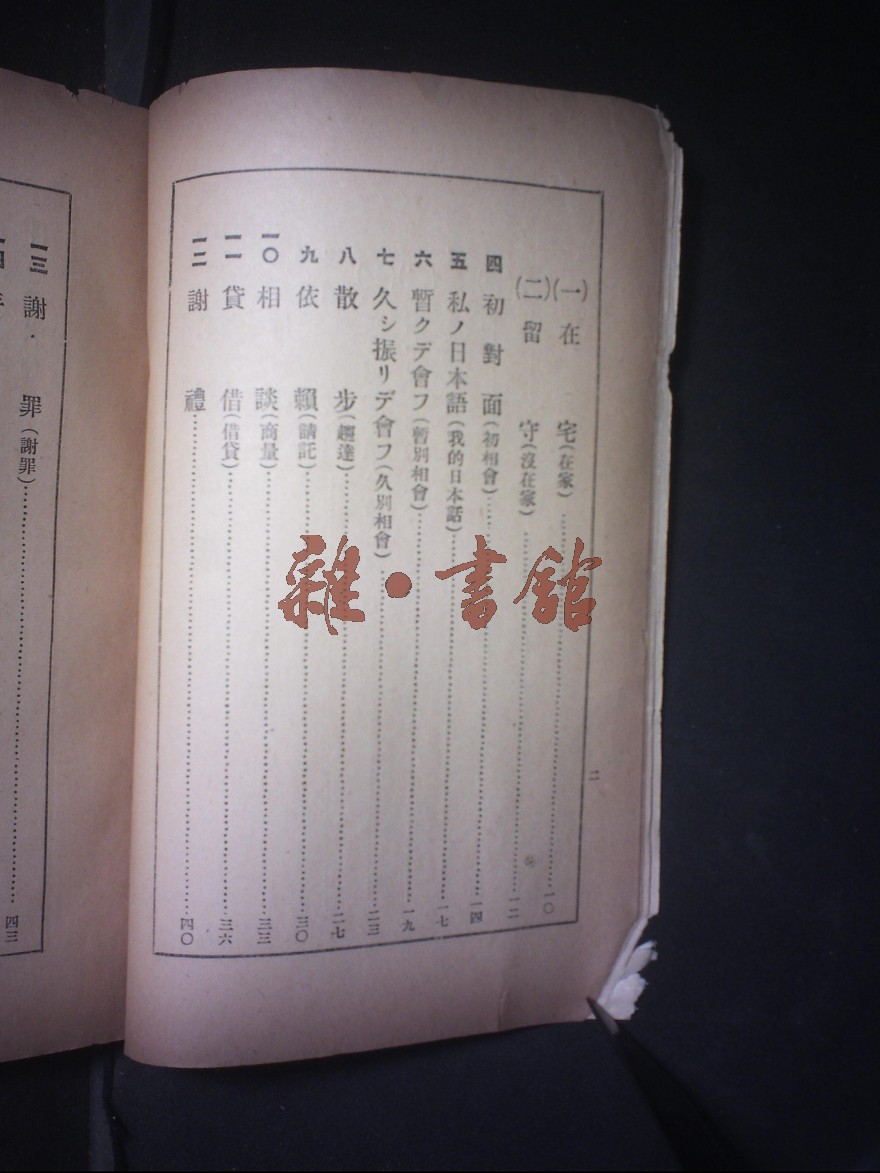 (一)在宅(在家)……一〇
(二)留守(沒在家)……一二
四 初對面(初相會)……一四
五 私ノ日本語(我的日本話)……一七
六 暫クデ會フ(暫別相會)……一九
七 久シ振リデ會フ(久別相會)……二三
八 散步(趟達)……二七
九 依賴(請託)……三〇
一〇 相談(商量)……三三
一一 貸借(借貸)……三六
一二 謝禮……四〇
二
一三 謝罪(謝罪)……四三
雜·書館